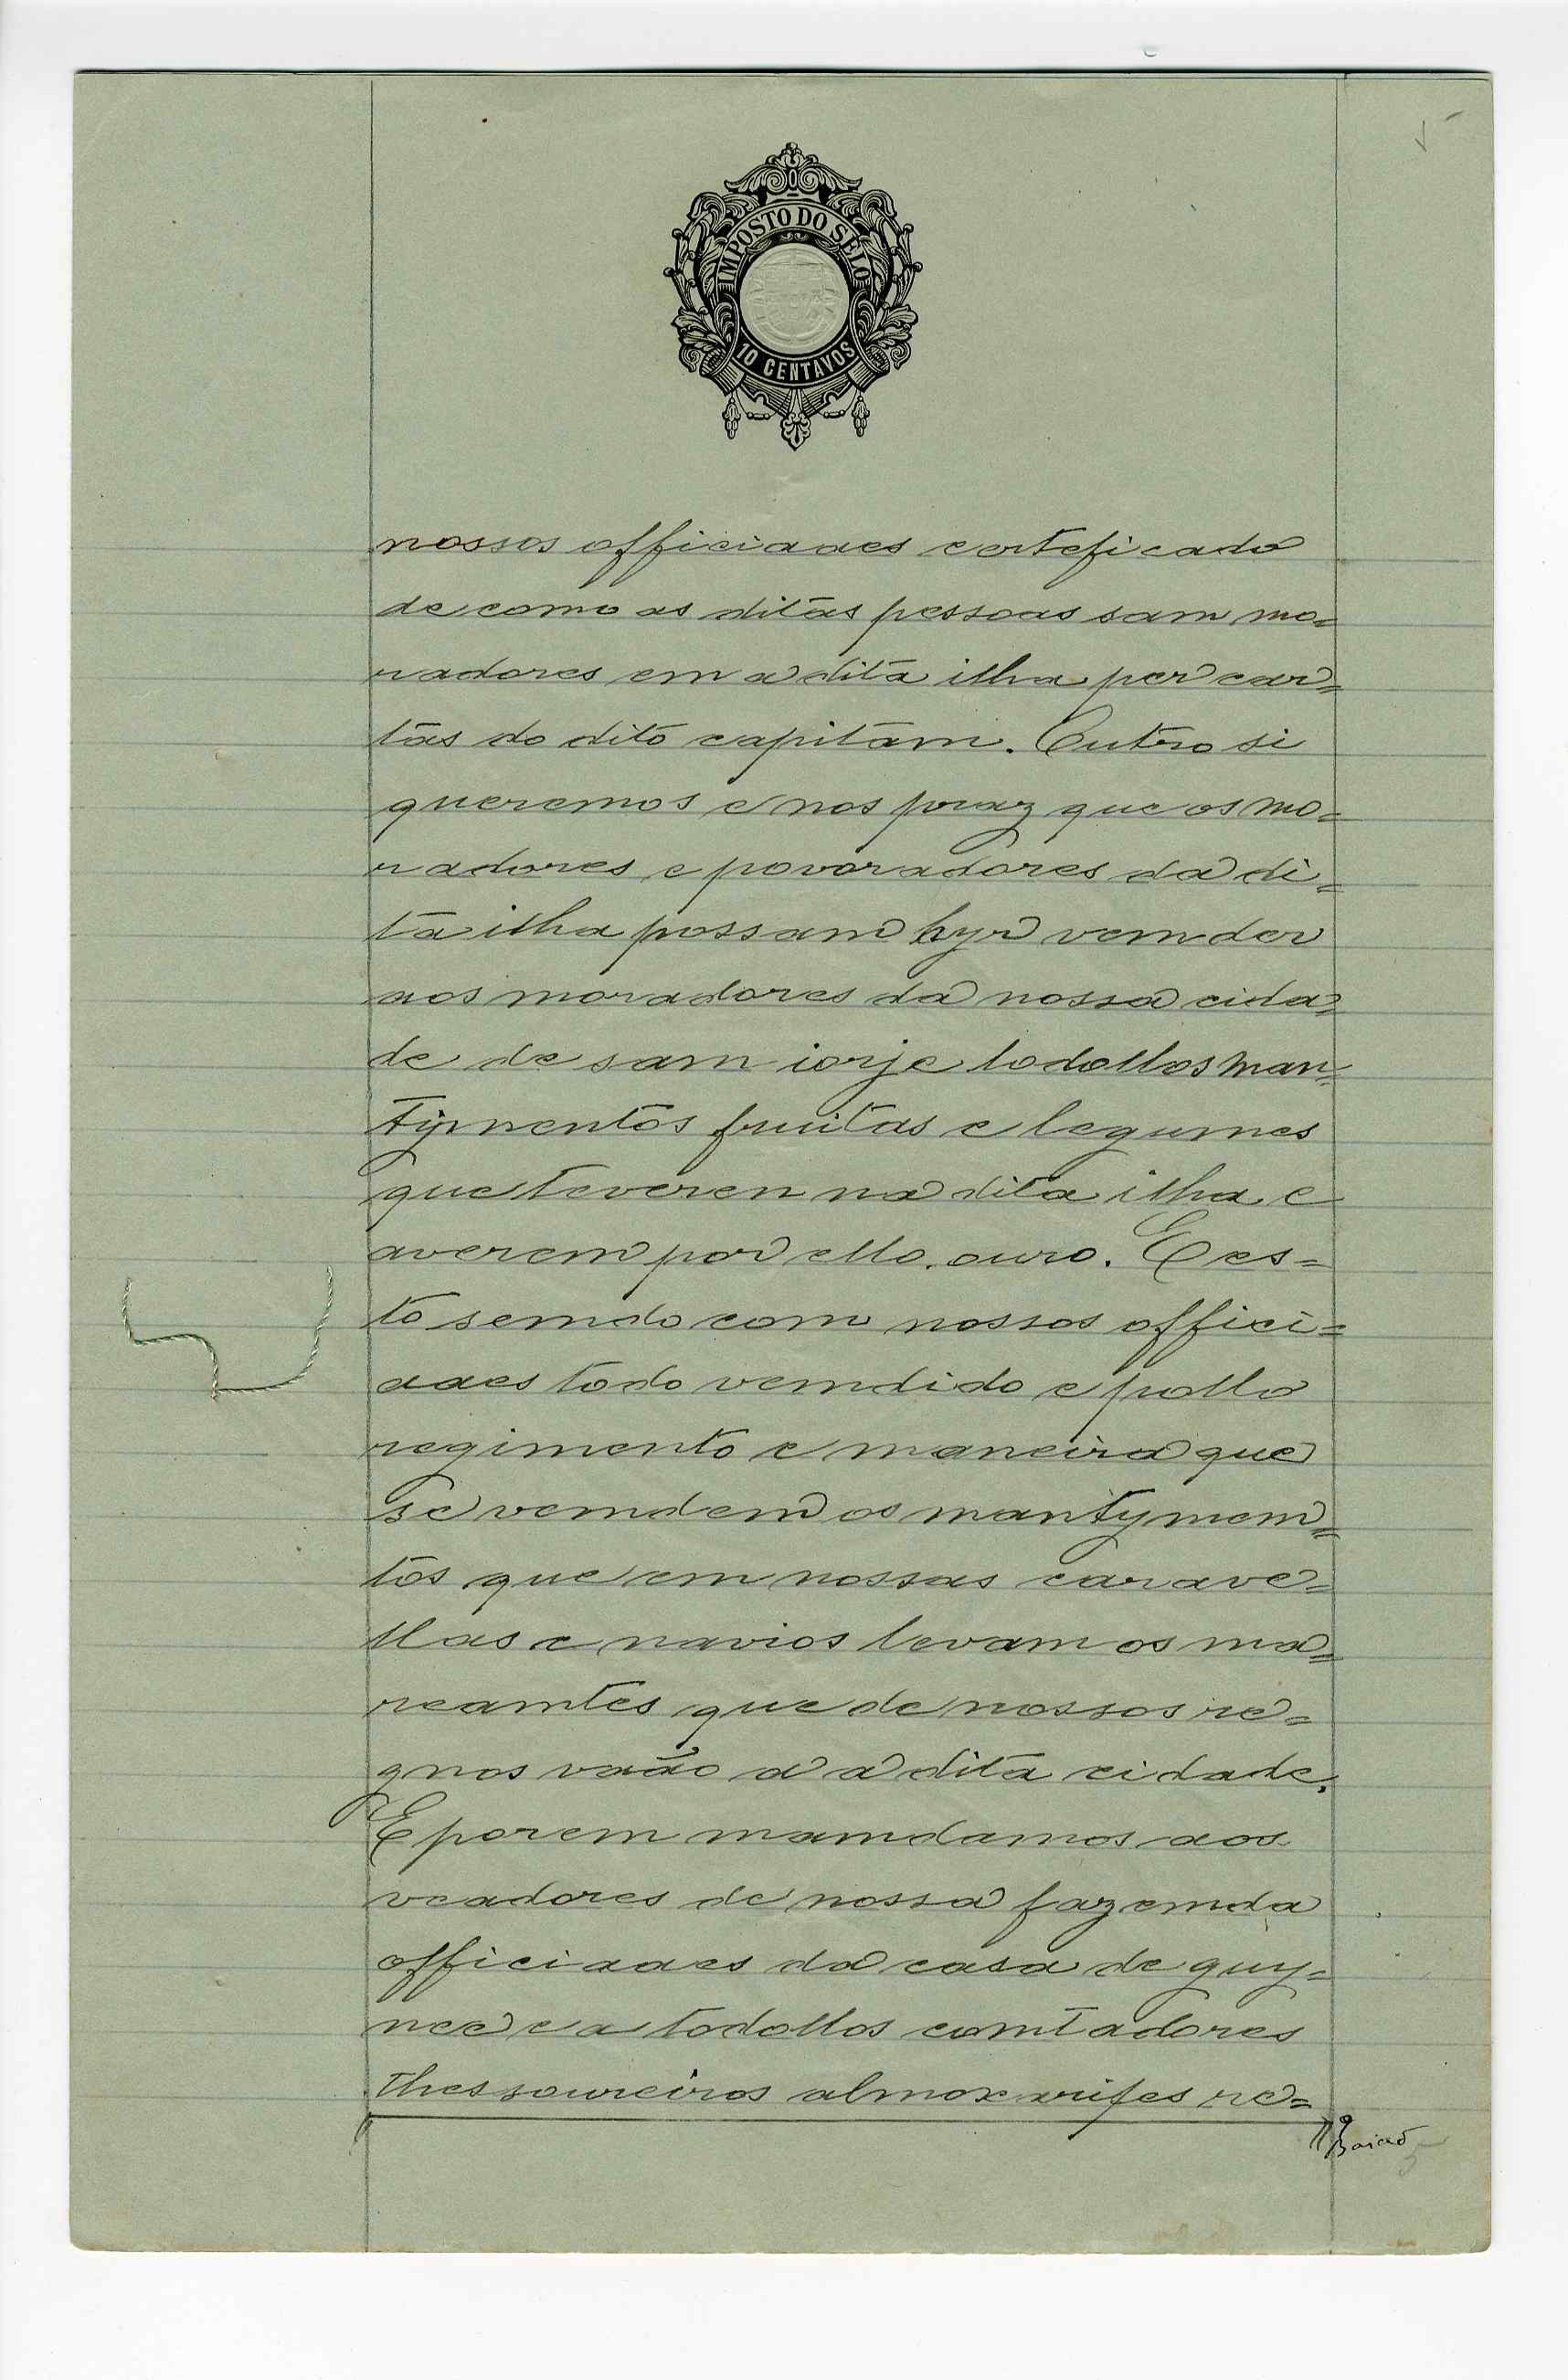 IMPOSTO DO SELO
10 CENTAVOS
nossos officiaaes certeficado
de como as ditas pessoas sam mo=
radores em a dita ilha per car=
tas do dito capitam. Outro si
queremos e nos praz que os mo=
radores e povoradores da di=
ta ilha possam hyr vemder
aos moradores da nossa cida=
de de sam iorje todollos man=
tijmentos fruitas e legumes
que teveren na dita ilha e
averem por ello. ouro. E es=
to semdo com nossos offici=
aaes todo vemdido e pollo
regimento e maneira que
se vemdem os mantymem=
tos que em nossas carave=
llas e navios levam os ma=
reamtes que de nossos re=
gnos vaão a a dita cidade.
E porem mamdamos aos
veadores de nossa fazemda
officiaaes da casa de guy=
nee e a todollos comtadores
thessoureiros almoxarifes re=
Baião
5